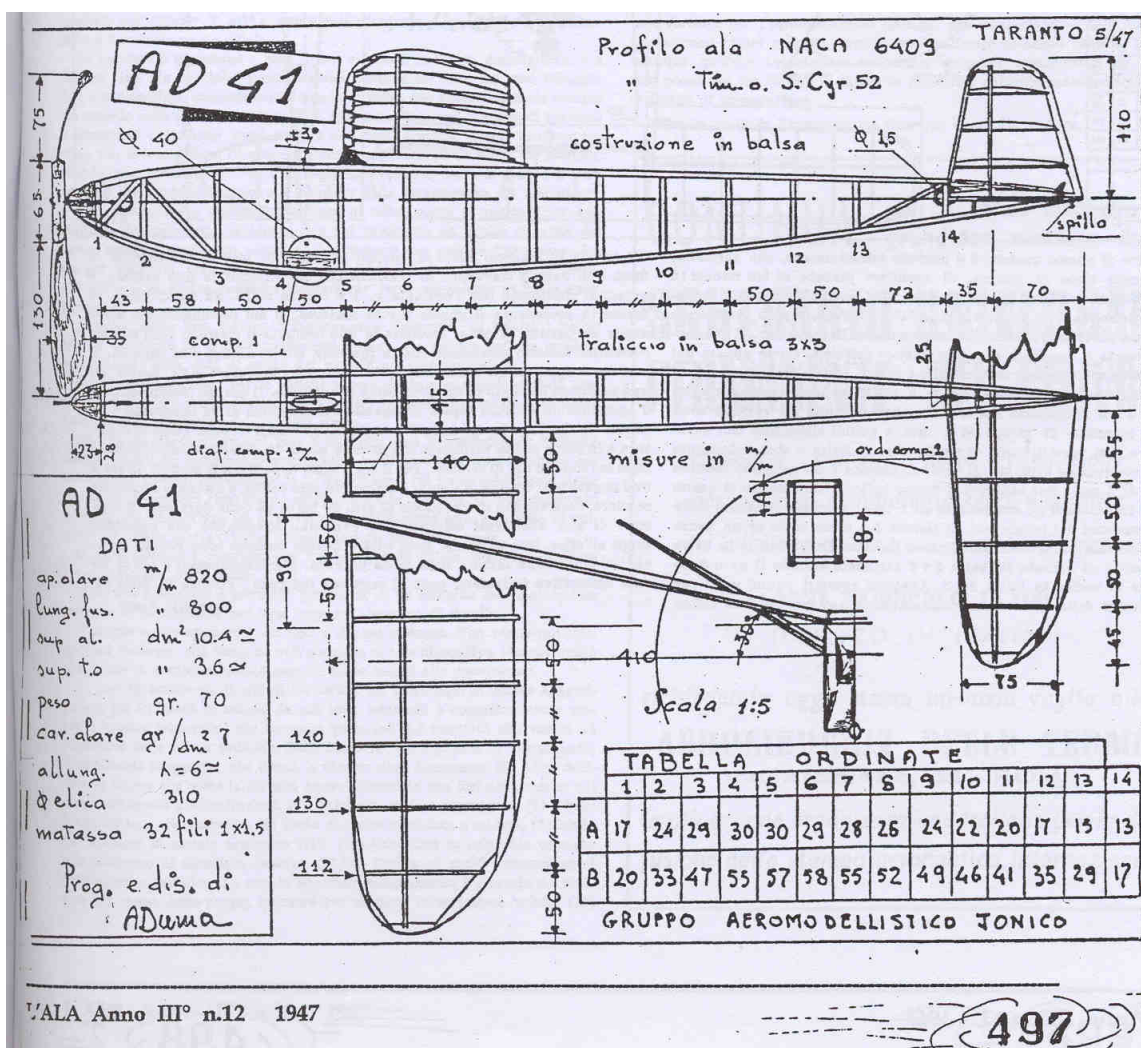 AD 41
Profilo ala NACA 6409
" Tim. o. S. Cyr. 52
TARANTO 5/47
costruzione in balsa
Φ 40
±3°
Φ 1,5
75
65
130
35
110
spillo
1 2 3 4 5 6 7 8 9 10 11 12 13 14
43 58 50 50 50 50 72 35 70
comp. 1
traliccio in balsa 3x3
25
45
23
28
diaf. comp. 1 m/m
140
50
Misure in m/m
ord. comp. 2
A
B
8
55
50
50
45
75
AD 41
DATI
ap. alare m/m 820
lung. fus. " 800
sup. al. dm² 10.4 ≃
sup. t.o " 3.6 ≃
peso gr. 70
car. alare gr/dm² 7
allung. λ=6 ≃
elica " 310
matassa 32 fili 1x1.5
Prog. e dis. di
ADuma
50
50
90
410
30
50
140
130
112
50
Scala 1:5
TABELLA ORDINATE
1 2 3 4 5 6 7 8 9 10 11 12 13 14
A 17 24 29 30 30 29 28 26 24 22 20 17 15 13
B 20 33 47 55 57 58 55 52 49 46 41 35 29 17
GRUPPO AEROMODELLISTICO JONICO
L'ALA Anno III° n.12 1947
497